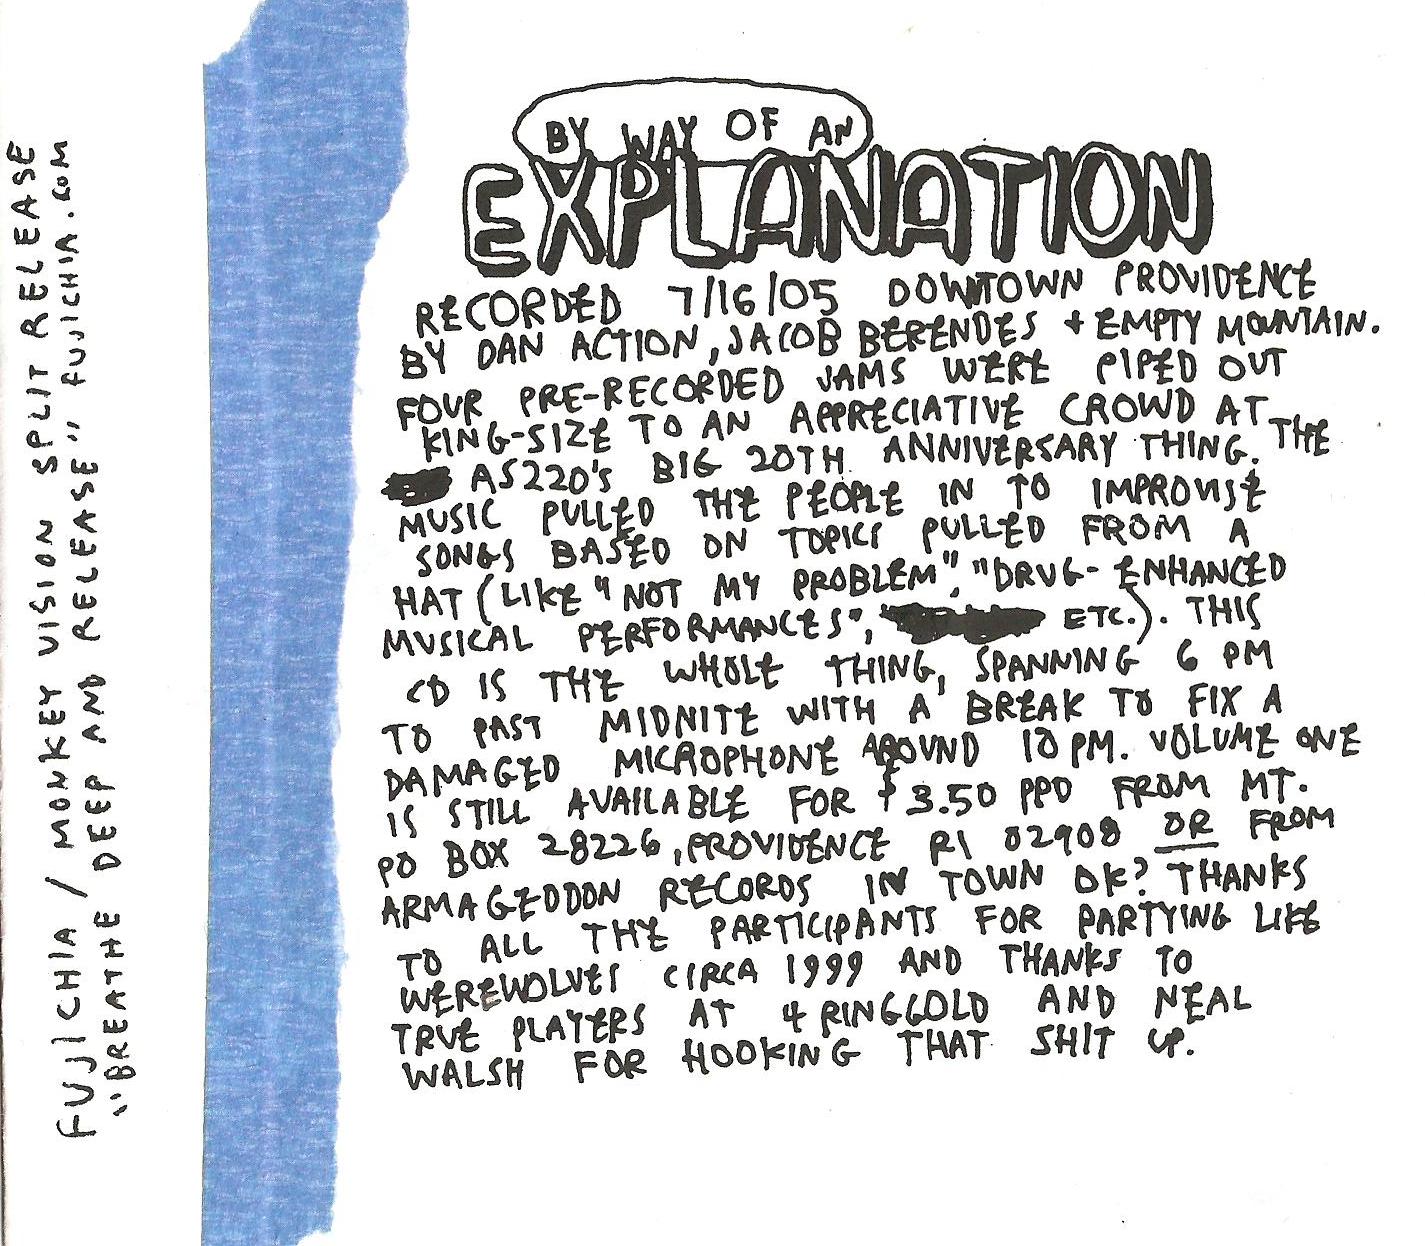 FUJICHIA / MONKEY VISION SPLIT RELEASE
"BREATHE DEEP AND RELEASE" FUJICHIA.COM
BY WAY OF AN
EXPLANATION
RECORDED 7/16/05 DOWNTOWN PROVIDENCE
BY DAN ACTION, JACOB BERENDES + EMPTY MOUNTAIN.
FOUR PRE-RECORDED JAMS WERE PIPED OUT
KING-SIZE TO AN APPRECIATIVE CROWD AT
AS220'S BIG 20TH ANNIVERSARY THING. THE
MUSIC PULLED THE PEOPLE IN TO IMPROVISE
SONGS BASED ON TOPICS PULLED FROM A
HAT (LIKE "NOT MY PROBLEM", "DRUG-ENHANCED
MUSICAL PERFORMANCES", ETC.). THIS
CD IS THE WHOLE THING, SPANNING 6 PM
TO PAST MIDNITE WITH A BREAK TO FIX A
DAMAGED MICROPHONE AROUND 10 PM. VOLUME ONE
IS STILL AVAILABLE FOR $3.50 PPD FROM MT.
PO BOX 28226, PROVIDENCE RI 02908 OR FROM
ARMAGEDDON RECORDS IN TOWN OK? THANKS
TO ALL THE PARTICIPANTS FOR PARTYING LIKE
WEREWOLVES CIRCA 1999 AND THANKS TO
TRUE PLAYERS AT 4 RINGGOLD AND NEAL
WALSH FOR HOOKING THAT SHIT UP.